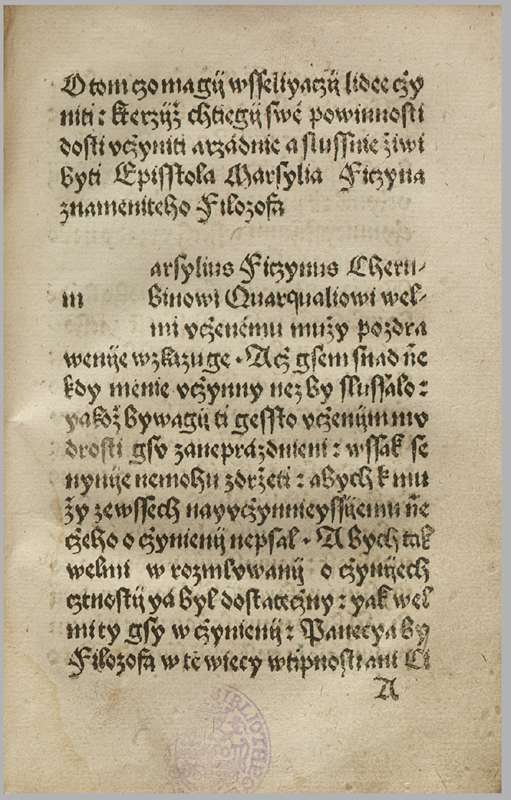 O tom czo magij wsselijaczij lidee czy
niti : kterzyž chtiegij swé powinnosti
dosti vczyniti a rzádnie a slussnie žiwi
byti Episstola Marsylia Ficzyna
znameniteho Filozofa
arsylius Ficzynus Cheru-
m binowi Quarqualiowi wel-
mi vczenému mužy pozdra
wenije wzkazuge . Acž gsem snad ñe
kdy menie vczynny nez by slussalo :
yakož bywagij ti gessto vczenijm mu
drosti gsv zaneprázdnieni : wssak se
nynije nemohu zdržeti : abych k mu
ži ze wssech nayvczynnieyssijemu ñe
czeho o czynienij nepsal . A bych tak
welmi w rozmlvwanij o czynijech
cztnostij ya byl dostateczny : yak wel
mi ty gsy w czynienij : Panecya by
Filozofa w té wiecy wtipnosti ani Ci
A
BIBLIOTH